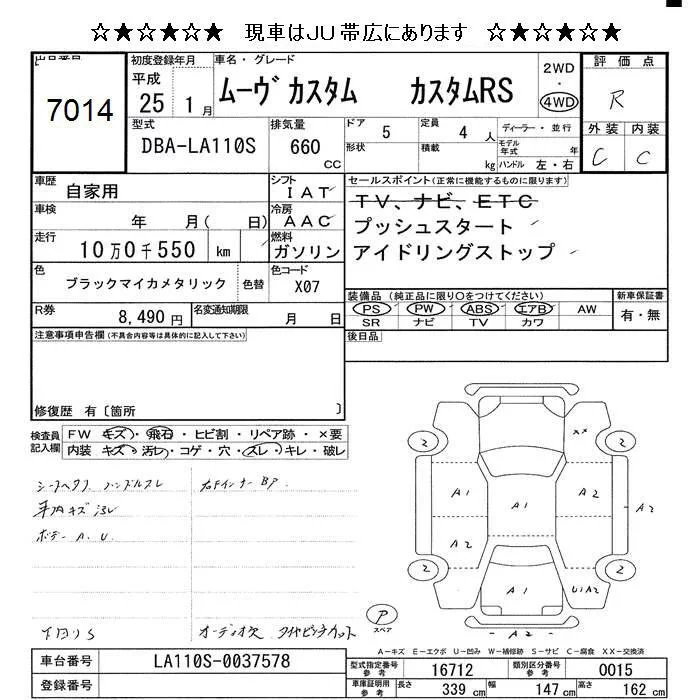 ☆★☆★☆★ 現車はＪＵ帯広にあります ☆★☆★☆★
7014
初度登録年月
平成
25 1 月
車名・グレード
ムーヴ カスタム カスタムRS
2WD
・
4WD
評価点
R
外装 内装
C C
型式
DBA-LA110S
排気量
660
CC
ドア 5
定員 4 人
ディーラー・並行
形状
積載 kg
モデル年式 年
ハンドル 左・右
車歴 自家用
シフト IAT
車検 年 月( 日)
冷房 AAC
走行 10万0千550 km
燃料 ガソリン
色 ブラックマイカメタリック
色替
色コード X07
R券 8,490 円
名変通知期限 月 日
セールスポイント(正常に機能するものに限ります)
TV、ナビ、ETC
プッシュスタート
アイドリングストップ
装備品 (純正品に限り○をつけてください)
PS PW ABS エアB AW
SR ナビ TV カワ
新車保証書
有・無
後日品
注意事項申告欄(不具合内容等は具体的に記入して下さい)
修復歴 有〔箇所 〕
検査員記入欄
FW キズ・飛石・ヒビ割・リペア跡・×要
内装 キズ・汚レ・コゲ・穴・スレ・キレ・破レ
ハンドルスレ
車内キズ汚レ
ボデー A. U.
下回りS
2
2
2
2
XX
A1
A1
A2
A2
A2
A1
U1A2
A2
P
スペア
A-キズ E-エクボ U-凹み W-補修跡 S-サビ C-腐食 XX-交換済
車台番号 LA110S-0037578
登録番号
型式指定番号 参考 16712
類別区分番号 参考 0015
車庫証明用 参考 長さ 339 cm 幅 147 cm 高さ 162 cm